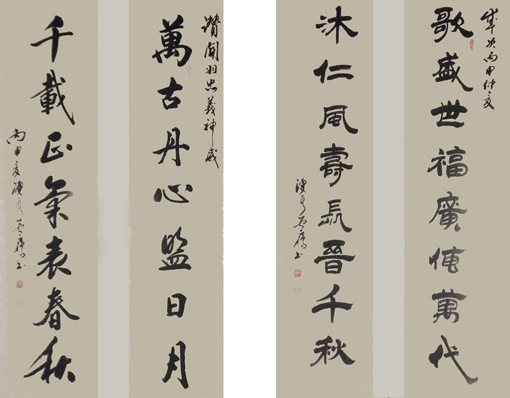 歲次丙申仲夏
歌盛世福廣萬代
沐仁風壽長晉千秋
讚關羽忠義神威
萬古丹心監日月
千載正氣表春秋
丙申夏書